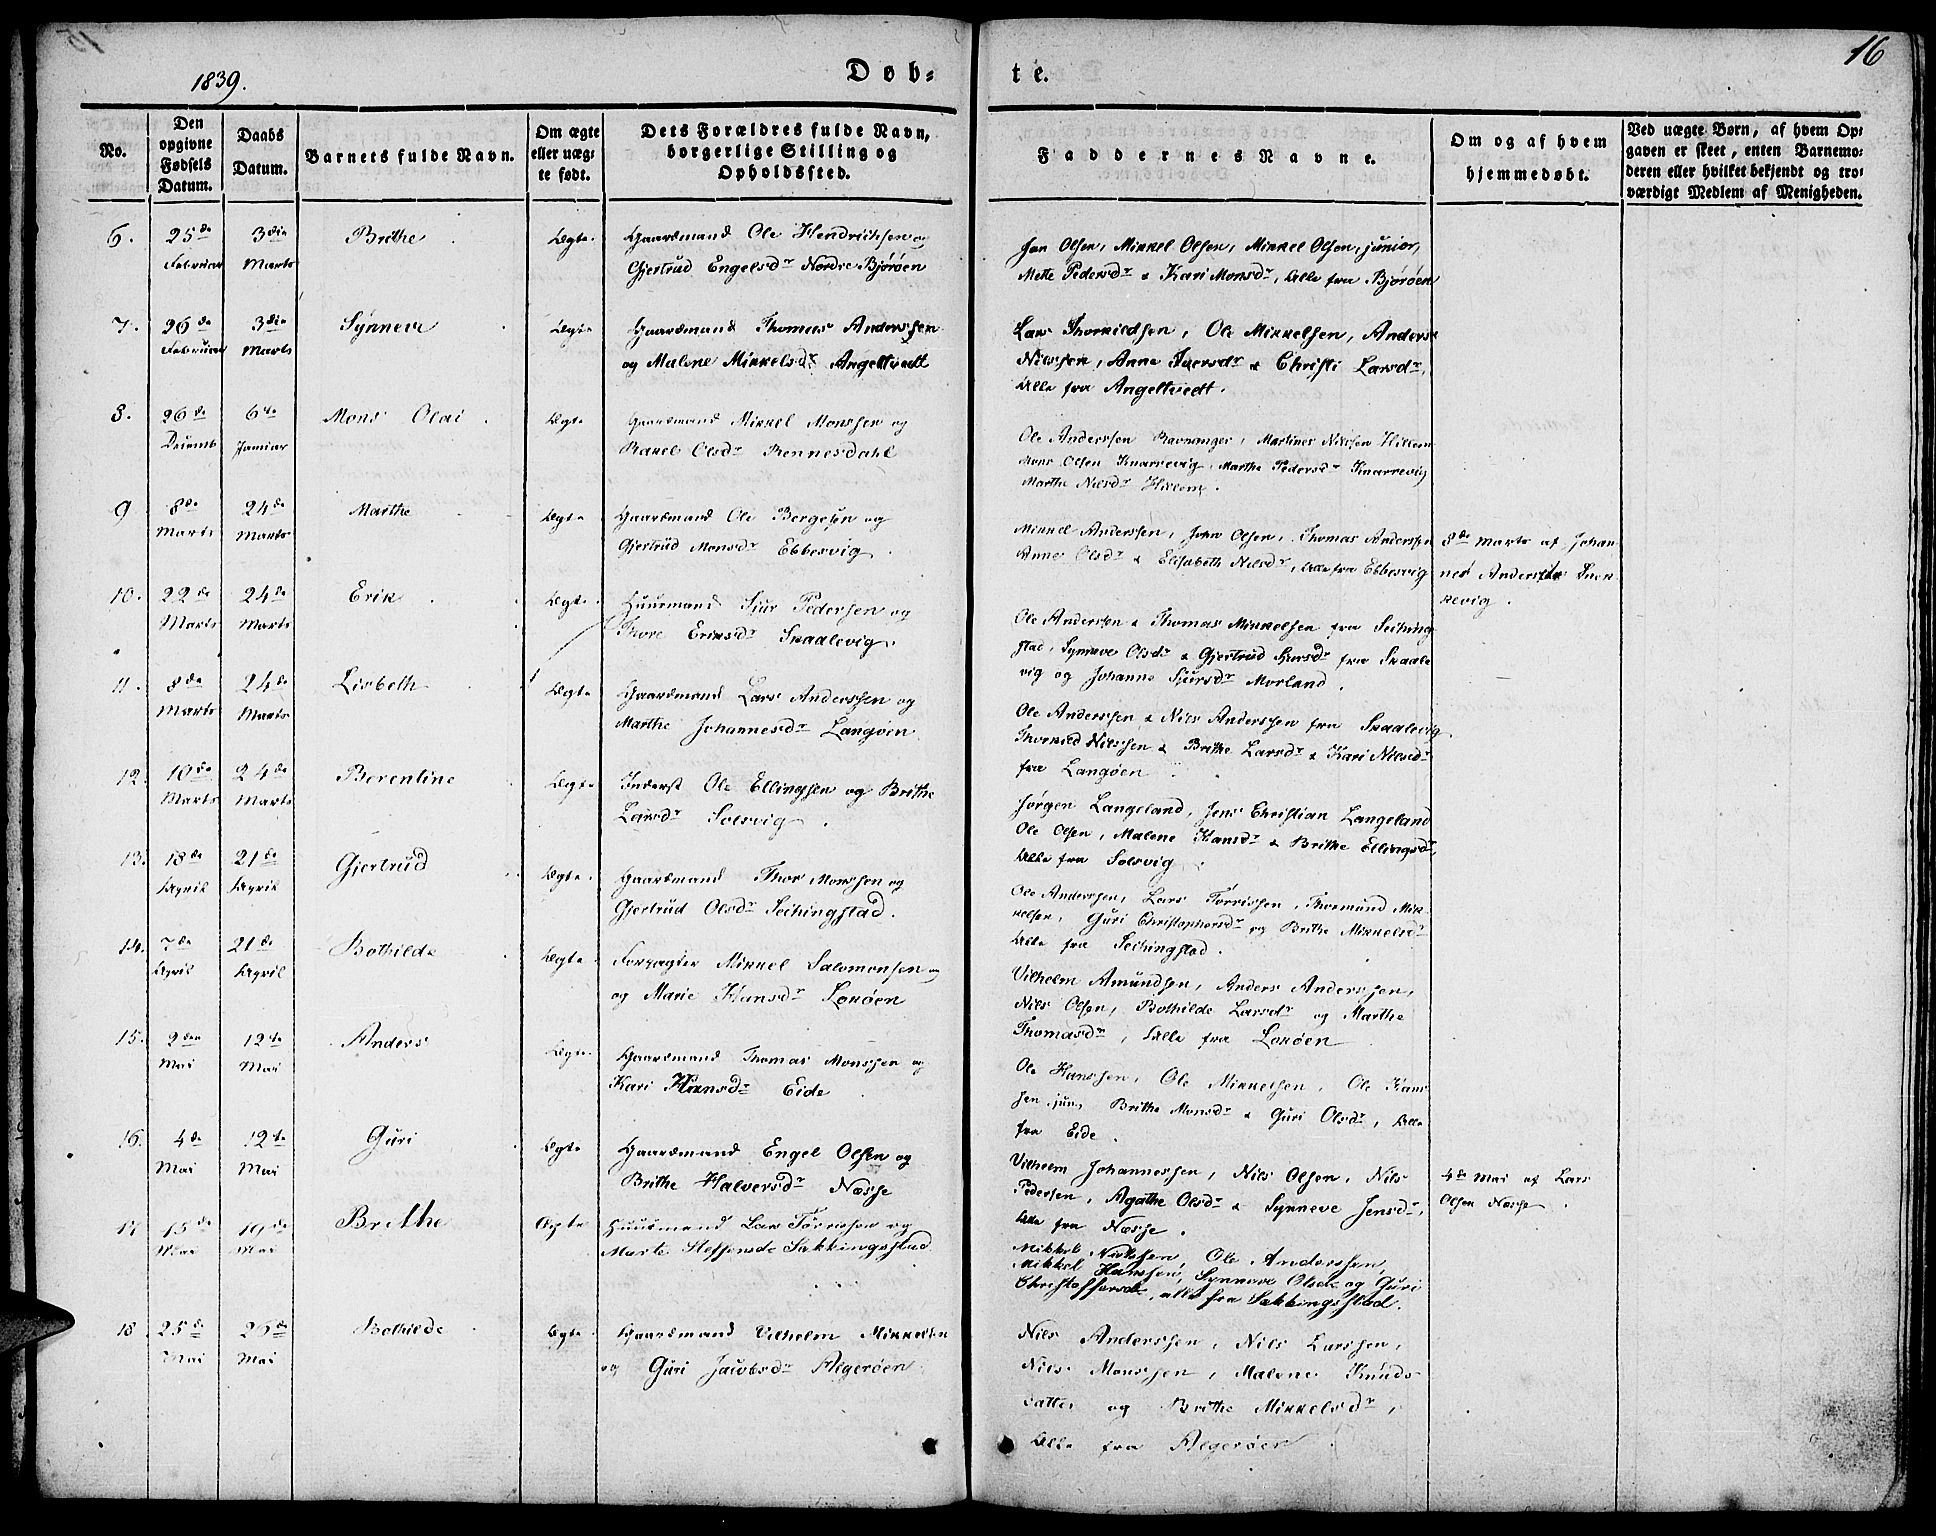 1839.
Døb=
te.
16
No.
Den opgivne Fødsels Datum.
Daabs Datum.
Barnets fulde Navn.
Om ægte eller uæg= te født.
Dets Forældres fulde Navn, borgerlige Stilling og Opholdsfted.
Faddernes Navne.
Om og af hvem hjemmedøbt.
Ved uægte Børn, af hvem Op= gaven er skeet, enten Barnemo= deren eller hvilket bekjendt og tro= værdigt Medlem af Menigheden.
6. 25de 3die Brithe Ægte Gaardmand Ole Hendrichsen og
Februar Marts Gjertrud Engelsdr Nordre Bjørøen
Jan Olsen, Mikkel Olsen, Mikkel Olsen, junior,
Mette Pedersdr & Kari Monsdr, Alle fra Bjørøen
7. 26de 3die Synneve Ægte Gaardmand Thomas Anderssen
Februar Marts og Malene Mikkelsdr Angeltvedt
Lars Thorkildsen, Ole Mikkelsen, Anders
Nilssen, Anne Iversdr & Christi Larsdr,
Alle fra Angeltvedt.
8. 26de 6te Mons Olai Ægte Gaardmand Mikkel Monssen og
Decemb Januar Rakel Olsdr Rennesdahl
Ole Anderssen Ravnanger, Martines Nilssen Hillem
Mons Olsen Knarrevig, Marthe Pedersdr Knarrevig
Marthe Nilsdr Hillem.
9 8de 24de Marthe Ægte Gaardmand Ole Bergesen og
Marts Marts Gjertrud Monsdr Ebbesvig.
Mikkel Anderssen, John Olsen, Thomas Anderssen
Anne Olsdr & Elisabeth Nilsdr, Alle fra Ebbesvig
8de Marts af Johan-
nes Anderssen
kevig.
10. 22de 24de Erik Ægte Huusmand Sjur Pedersen og
Marts Marts Thore Eriksdr Skaalevig.
Ole Anderssen & Thomas Mikkelsen fra Seching
stad, Synneve Olsdr & Gjertrud Sjursdr fra Skaale
vig og Johanne Sjursdr Morland.
11. 8de 24de Lisbeth Ægte Gaardmand Lars Anderssen og
Marts Marts Marthe Johannesdr Langøen
Ole Anderssen & Nils Anderssen fra Skaalevig
Thorkild Nilssen & Brithe Larsdr & Kari Nilsdr
fra Langøen
12. 10de 24de Berentine Ægte Inderst Ole Ellingsen og Brithe
Marts Marts Larsdr Solsvig.
Jørgen Langeland, Jens Christian Langeland
Ole Olsen, Malene Hansdr & Brithe Ellingsdr,
Alle fra Solsvig.
13. 18de 21de Gjertrud Ægte Gaardmand Thor Monssen og
April April Gjertrud Olsdr Sechingstad.
Ole Anderssen, Lars Torrissen, Thormund Mik-
kelsen, Guri Christophersdr og Brithe Mikkelsdr
Alle fra Sechingstad.
14. 7de 21de Bothilde Ægte Forpagter Mikkel Salomonsen og
April April og Marie Hansdr Lokøen
Vilhelm Amundsen, Anders Anderssen,
Nils Olsen, Bothilde Larsdr og Marthe
Thomasdr, Alle fra Lokøen
15. 2den 12te Anders Ægte Gaardmand Thomas Monssen og
Mai Mai Kari Hansdr Eide
Ole Hanssen, Ole Mikkelsen, Ole Hans
sen jun, Brithe Monsdr & Guri Olsdr, Alle
fra Eide.
16. 4de 12te Guri Ægte Gaardmand Engel Olsen og
Mai Mai Brithe Halversdr Næsse
Vilhelm Johannessen, Nils Olsen, Nils
Pedersen, Agathe Olsdr & Synneve Jensdr,
Alle fra Næsse.
4de Mai af Lars
Olsen Næsse.
17 15de 19de Brithe Ægte Huusmand Lars Torrissen og
Mai Mai Marte Steffensdr Sækkingsstad
Mikkel Nielssen, Ole Anderssen,
Mikkel Hanssen, Synneve Olsdr og Guri
Christoffersdr, alle fra Sækkingsstad.
18 25de 26de Bothilde Ægte Gaardmand Vilhelm Mikkelsen
Mai Mai og Guri Jacobsdr Algerøen
Nils Anderssen, Nils Larssen,
Nils Monssen, Malene Knuds-
datter og Brithe Mikkelsdr,
Alle fra Algerøen